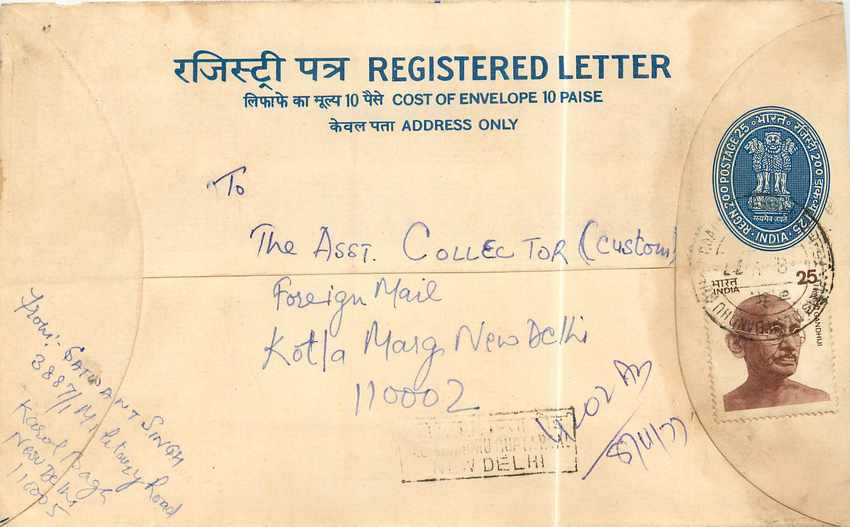 रजिस्ट्री पत्र REGISTERED LETTER
लिफाफे का मूल्य 10 पैसे COST OF ENVELOPE 10 PAISE
केवल पता ADDRESS ONLY
भारत रजिस्ट्री 200 डाक 25
REGN 200 POSTAGE 25
सत्यमेव जयते
INDIA
To
The ASST. COLLECTOR (Custom)
Foreign Mail
Kotla Marg New Delhi
110002
भारत 25
INDIA
GANDHIJI
From:- SATWANT SINGH
3887/1 Military Road
Karol Bagh
New Delhi
110005
NEW DELHI